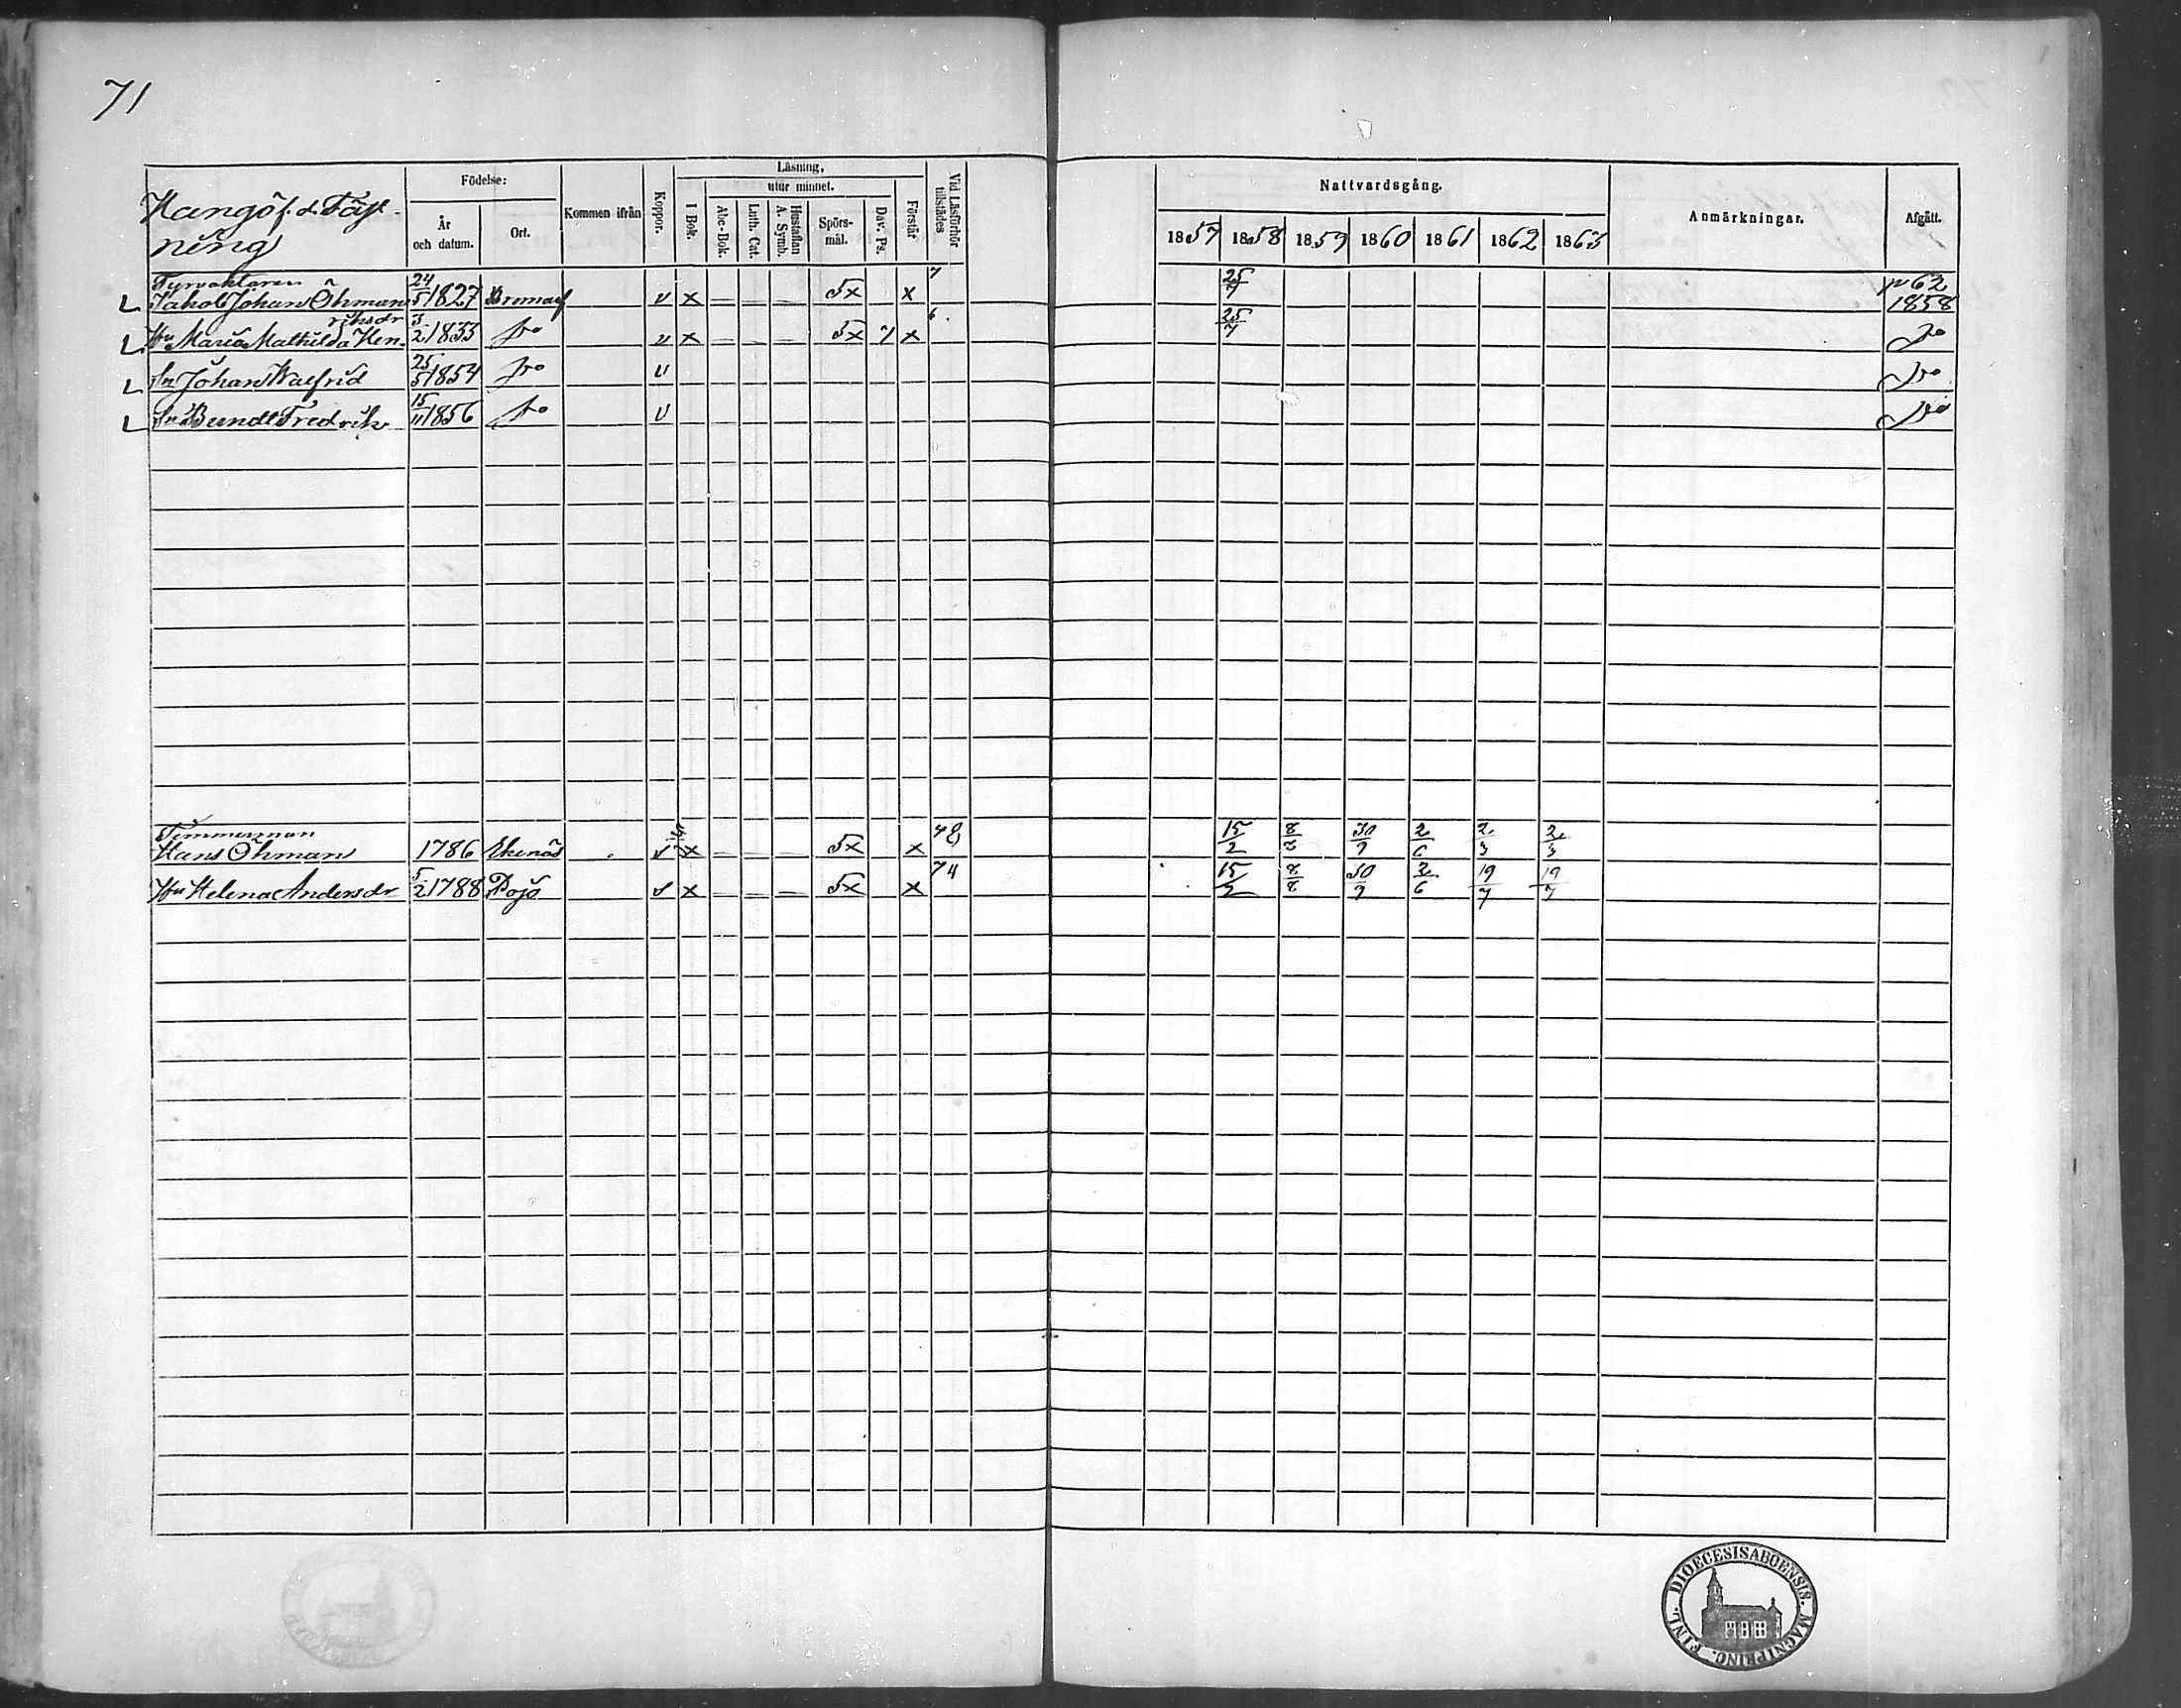 71
Hangö f. d. Fäst-
ning
Födelse:
År och datum.
Ort.
Kommen ifrån
Koppor.
Läsning,
I Bok.
utur minnet.
Abc-Bok.
Luth. Cat.
Hustaflan A. Symb.
Spörs-mål.
Dav. Ps.
Förstår
Vid Läsförhör tillstädes
Nattvardsgång.
1857 1858 1859 1860 1861 1862 1863
Anmärkningar.
Afgått.
Fyrvaktaren
Jakob Johan Öhman 24/5 1827 Bromarf v x 5x x 7 25/7 p 62 1858
riksdr
Hu Maria Mathilda Hen- 3/2 1833 do v x 5x 7 x 6. 25/7 do
Sn Johan Walfrid 25/5 1854 do v do
Sn Berndt Fredrik 15/11 1856 do v do
Timmerman
Hans Öhman 1786 Ekenäs v x 5x x 15/2 8/8 30/9 2/6 2/3 2/3
Hu Helena Andersdr 5/2 1788 Pojo v x 5x x 74 15/2 8/8 30/9 2/6 19/7 19/7
DIOECESIS ABOENSIS. MAGNI PRINC. FINL.